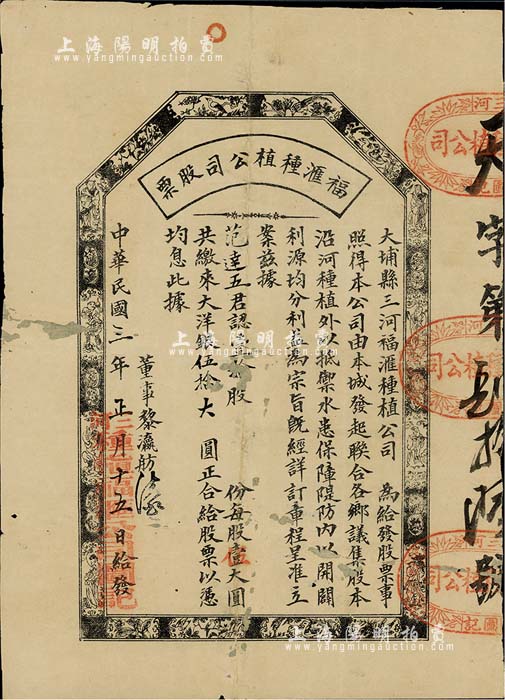 上海陽明拍賣
www.yangmingauction.com
福滙種植公司股票
大埔縣三河福滙種植公司 為給發股票事
照得本公司由本城發起聯合各鄉議集股本
沿河種植外以抵禦水患保障隄防內以開闢
利源均分利益為宗旨既經詳訂章程呈准立
案茲據
范達五君認 股 份每股壹大圓
共繳來大洋銀伍拾大 圓正合給股票以憑
均息此據
董事黎瀛舫
中華民國三年正月十五日給發
字第 號
上海陽明拍賣
www.yangmingauction.com
上海陽明拍賣
www.yangmingauction.com